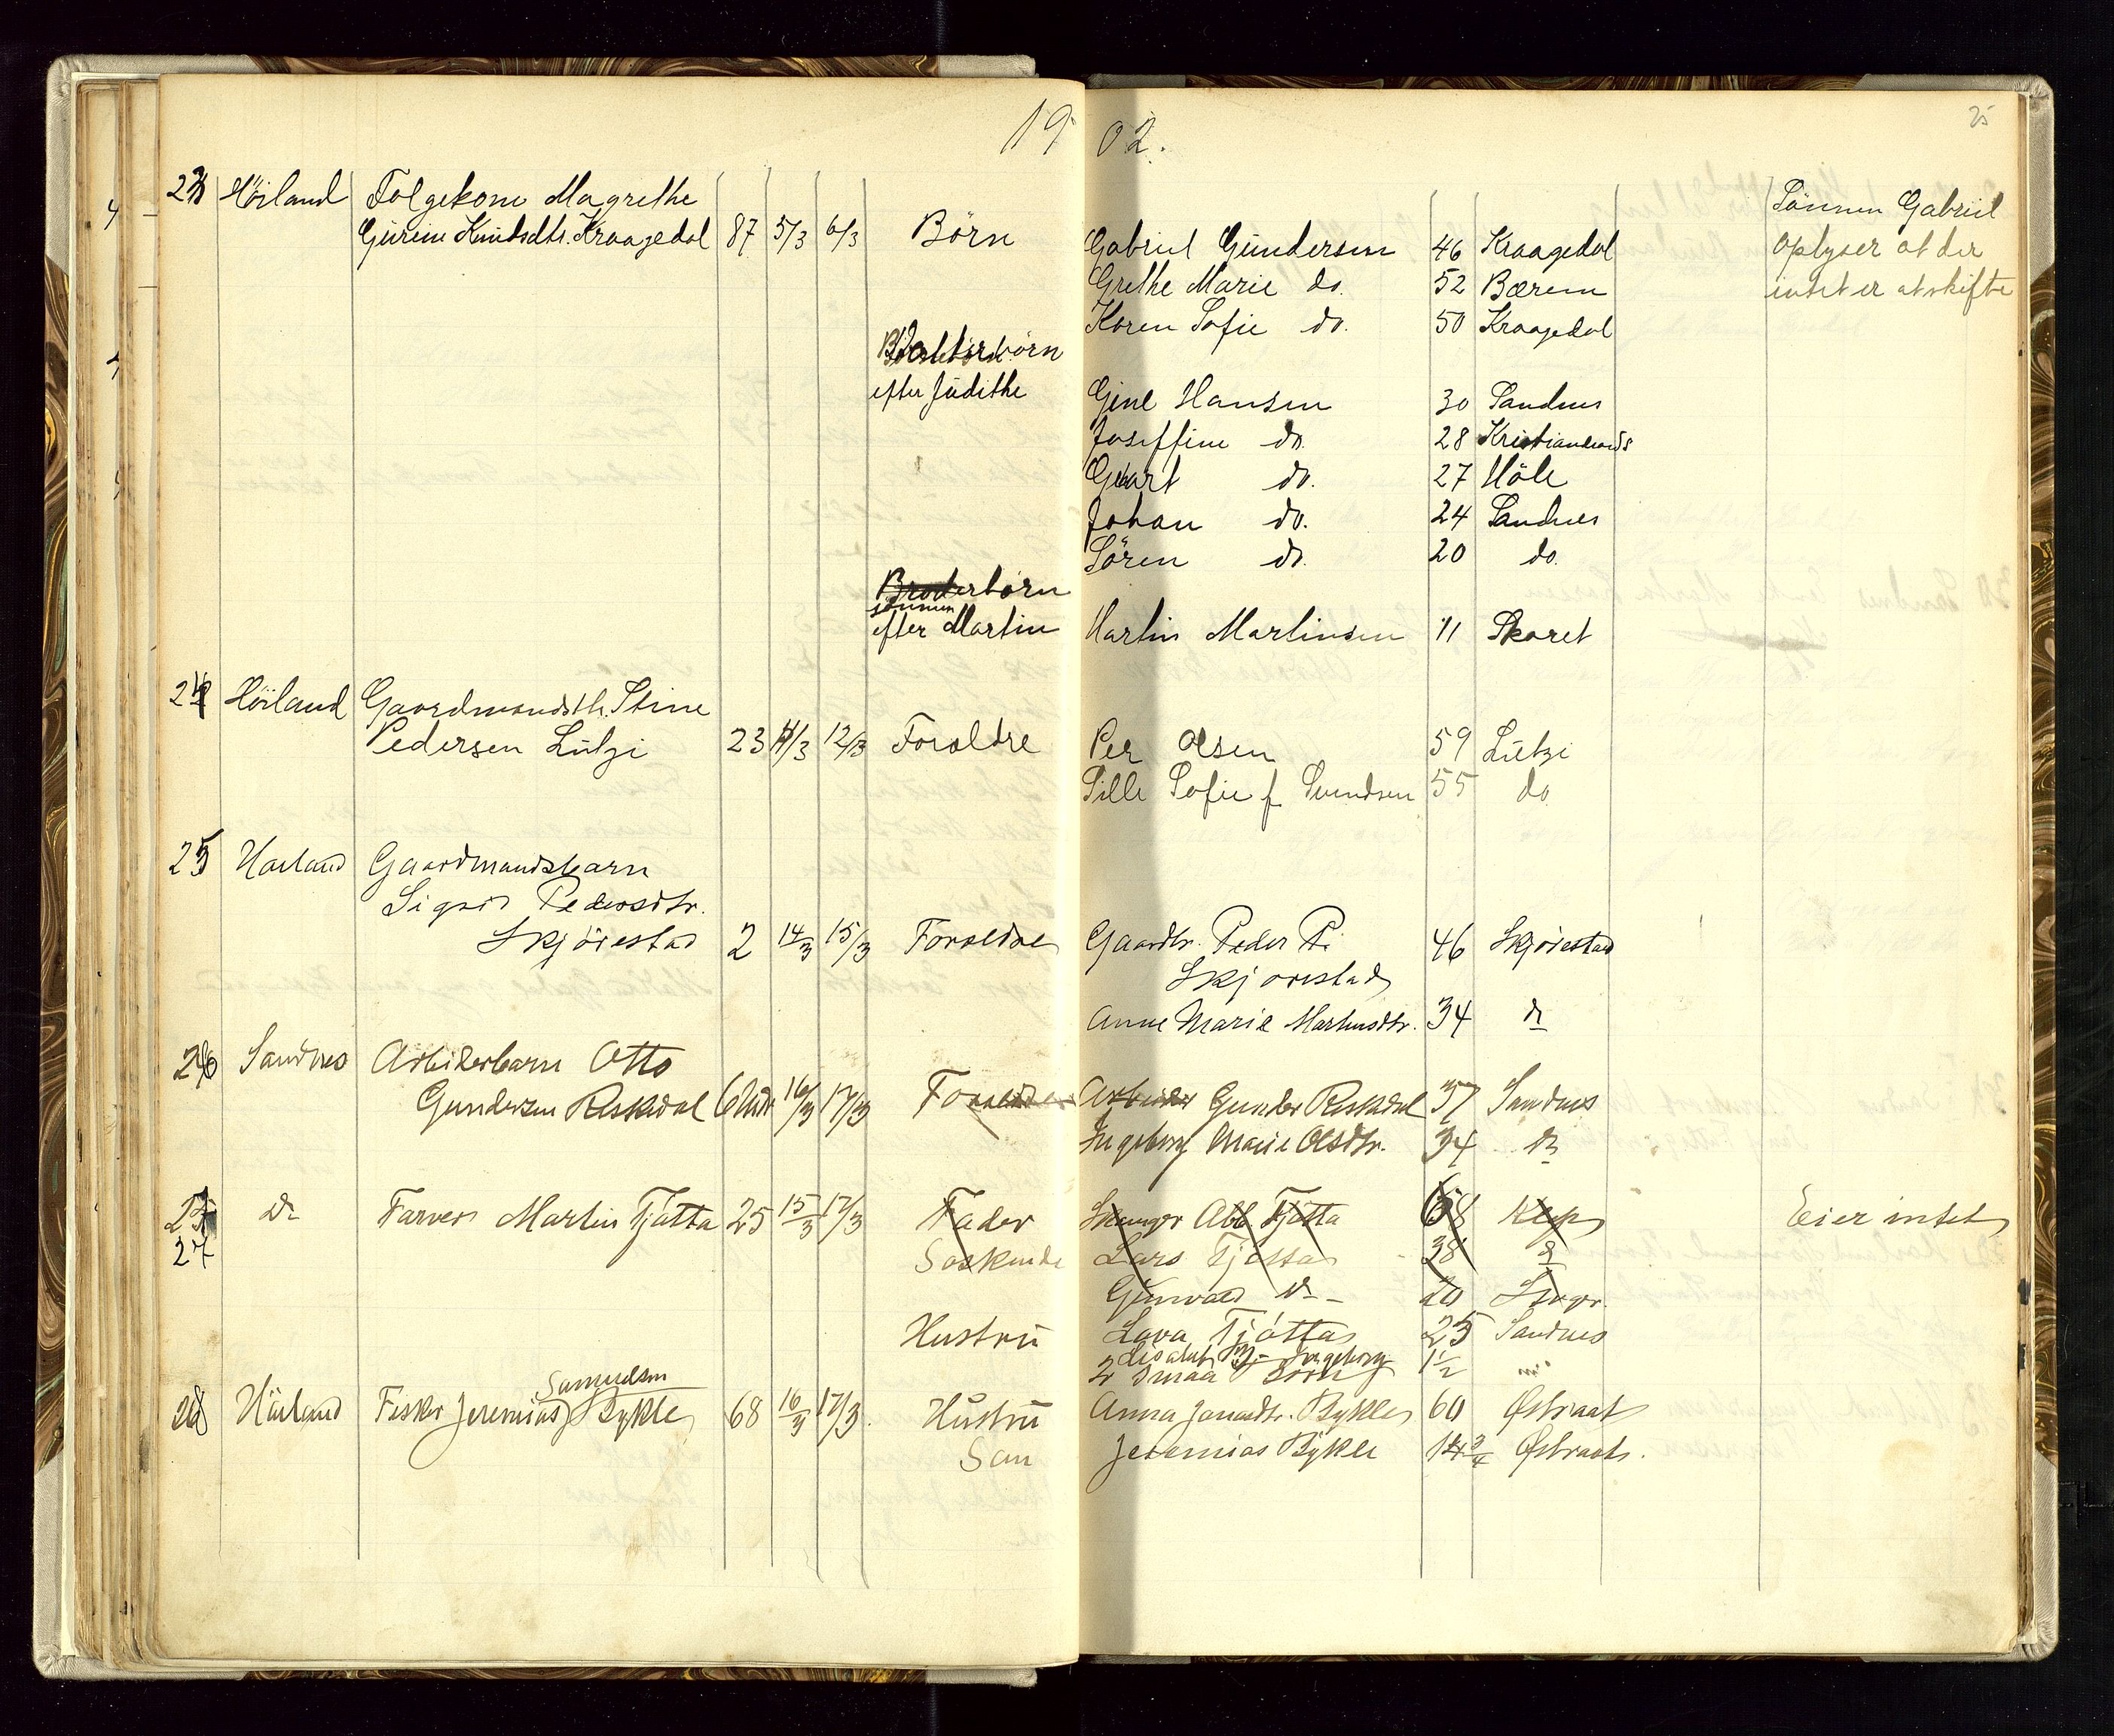 19 02.
25
23 Höiland Folgekone Magrethe
Gurine Knutsdtr. Kraagedal 87 5/3 6/3 Börn Gabriel Gundersen 46 Kraagedal Sönnen Gabriel
Grethe Marie do. 52 Bærem oplyser at der
Karen Sofie do. 50 Kraagedal intet er at skifte
efter Judithe
Gine Hansen 30 Sandnes
Joseffine do. 28 Kristiansands
do. 27 Höle
Johan do. 24 Sandnes
Sören do. 20 do.
Broderbörn
sönnen
efter Martin Martin Martinsen 11 Skaret
24 Höiland Gaardmandsdtr. Stine
Pedersen Lutzi 23 11/3 12/3 Foraldre Per Olsen 59 Lutzi
Sille Sofie f. Svendsen 55 do
25 Höiland Gaardmandsbarn
Sigrid Pedersdtr.
Skjörestad 2 14/3 15/3 Foraeldre Gaardbr. Peder P. 46 Skjörestad
Skjorestad
Anne Marie Martinsdtr. 34 do
26 Sandnes Arbiderbarn Otto
Gundersen Reskedal 6 Uger 16/3 17/3 Foraeldre Arbeider Gunder Reskedal 37 Sandnes
Ingeborg Marie Olsdtr. 34 do
27 do Farver Martin Tjötta 25 15/3 17/3 Fader Tjötta 68 Klep Eier intet
27 Soskende Lars Tjötta 38 do
Gunvald do 20
Hustru Lava Tjötta 25 Sandnes
2 smaa Börn Ingeborg 1 1/2 "
Samuelsen
28 Höiland Fisker Jeremias Bykle 68 16/3 17/3 Hustru Anna Jonasdtr. Bykle 60 Østraat
San Jeremias Bykle 14 3/4 Østraat.